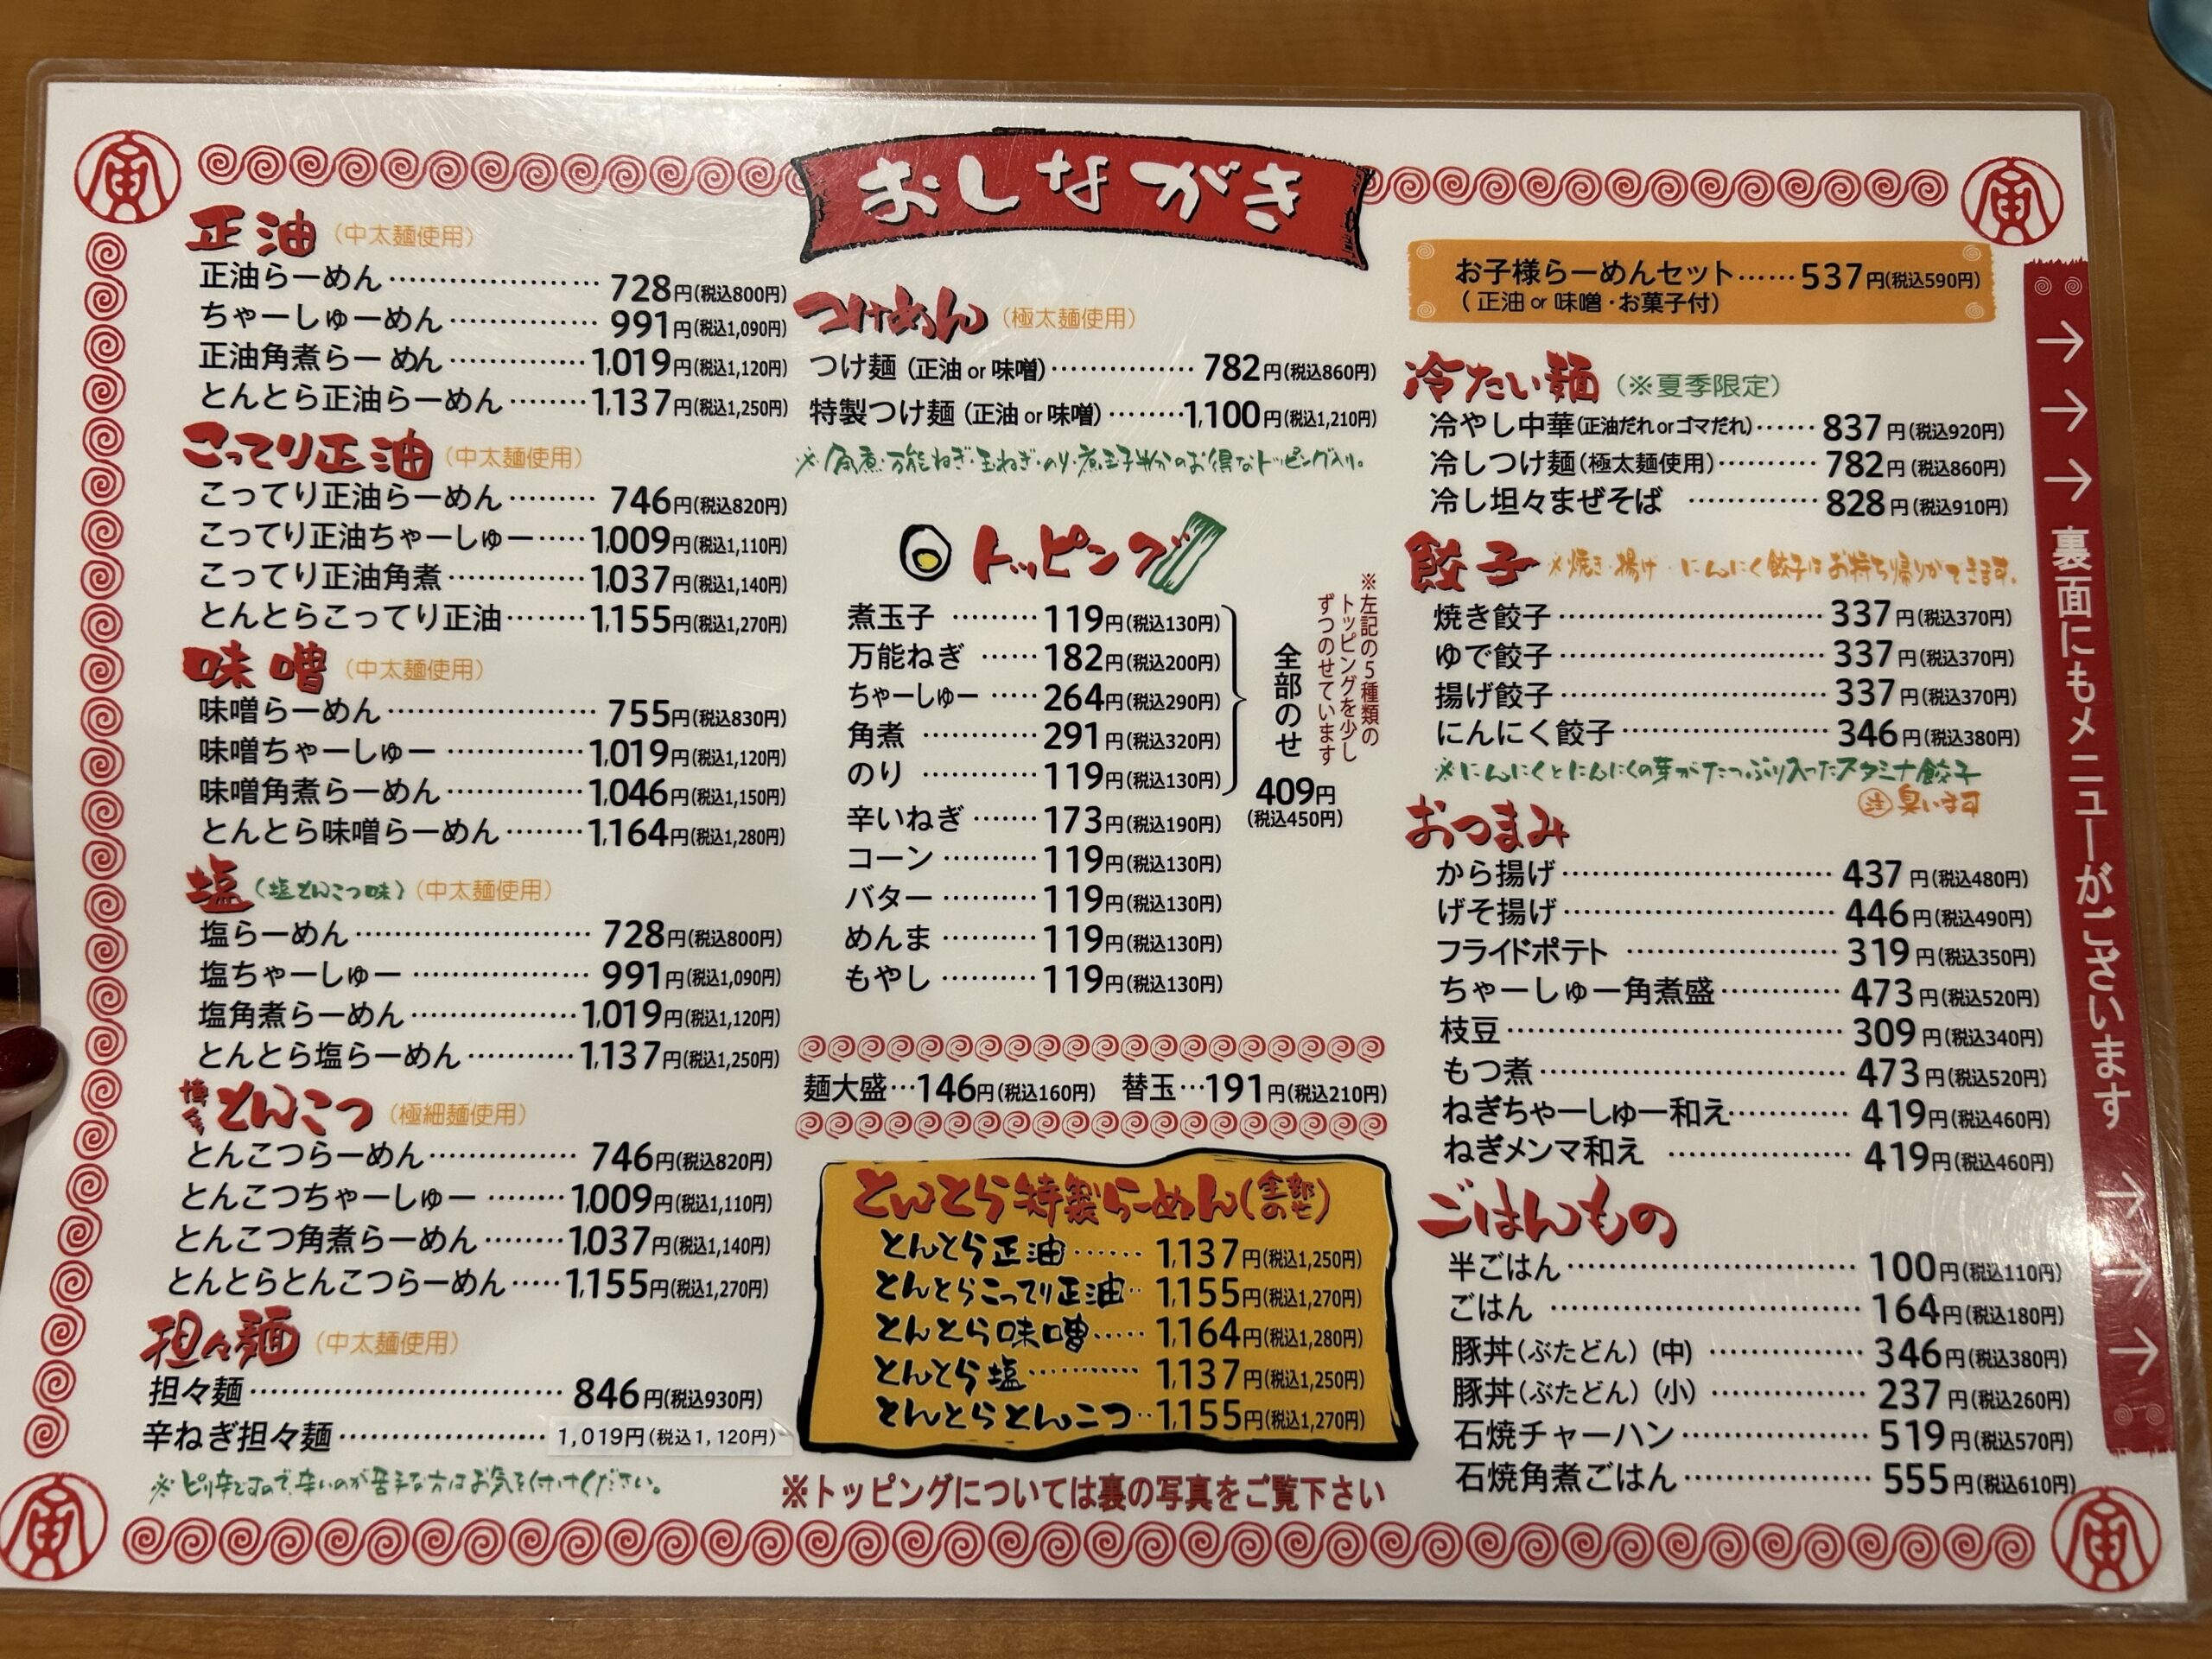 おしながき
正油（中太麺使用）
正油らーめん………………… 728円(税込800円)
ちゃーしゅーめん…………… 991円(税込1,090円)
正油角煮らーめん…………1,019円(税込1,120円)
とんとら正油らーめん………1,137円(税込1,250円)
こってり正油（中太麺使用）
こってり正油らーめん……… 746円(税込820円)
こってり正油ちゃーしゅー……1,009円(税込1,110円)
こってり正油角煮…………1,037円(税込1,140円)
とんとらこってり正油………1,155円(税込1,270円)
味噌（中太麺使用）
味噌らーめん………………… 755円(税込830円)
味噌ちゃーしゅー …………1,019円(税込1,120円)
味噌角煮らーめん…………1,046円(税込1,150円)
とんとら味噌らーめん………1,164円(税込1,280円)
塩（塩とんこつ味）（中太麺使用）
塩らーめん…………………… 728円(税込800円)
塩ちゃーしゅー ……………… 991円(税込1,090円)
塩角煮らーめん……………1,019円(税込1,120円)
とんとら塩らーめん…………1,137円(税込1,250円)
博多とんこつ（極細麺使用）
とんこつらーめん…………… 746円(税込820円)
とんこつちゃーしゅー ………1,009円(税込1,110円)
とんこつ角煮らーめん………1,037円(税込1,140円)
とんとらとんこつらーめん……1,155円(税込1,270円)
担々麺（中太麺使用）
担々麺………………………… 846円(税込930円)
辛ねぎ担々麺…………………1,019円(税込1,120円)
※ピリ辛ですので、辛いのが苦手な方はお気を付けください。
つけめん（極太麺使用）
つけ麺（正油or味噌）…………… 782円(税込860円)
特製つけ麺（正油or味噌）………1,100円(税込1,210円)
※角煮・万能ねぎ・玉ねぎ・のり・煮玉子半分のお得なトッピング入り。
トッピング
煮玉子 ………119円(税込130円)
万能ねぎ ……182円(税込200円)
ちゃーしゅー ……264円(税込290円)
角煮 …………291円(税込320円)
のり …………119円(税込130円)
全部のせ
409円
(税込450円)
※左記の5種類の
トッピングを少し
ずつのせています
辛いねぎ ……173円(税込190円)
コーン ………119円(税込130円)
バター ………119円(税込130円)
めんま ………119円(税込130円)
もやし ………119円(税込130円)
麺大盛…146円(税込160円) 替玉…191円(税込210円)
とんとら特製らーめん(全部のせ)
とんとら正油…… 1,137円(税込1,250円)
とんとらこってり正油… 1,155円(税込1,270円)
とんとら味噌…… 1,164円(税込1,280円)
とんとら塩………… 1,137円(税込1,250円)
とんとらとんこつ… 1,155円(税込1,270円)
※トッピングについては裏の写真をご覧下さい
お子様らーめんセット……537円(税込590円)
（正油or味噌・お菓子付）
冷たい麺（※夏季限定）
冷やし中華(正油だれorゴマだれ)…… 837円(税込920円)
冷しつけ麺（極太麺使用）……… 782円(税込860円)
冷し坦々まぜそば ………… 828円(税込910円)
餃子 ※焼き・揚げ・にんにく餃子はお持ち帰りができます。
焼き餃子……………………… 337円(税込370円)
ゆで餃子……………………… 337円(税込370円)
揚げ餃子……………………… 337円(税込370円)
にんにく餃子………………… 346円(税込380円)
※にんにくとにんにくの芽がたっぷり入ったスタミナ餃子
注 臭います
おつまみ
から揚げ……………………… 437円(税込480円)
げそ揚げ……………………… 446円(税込490円)
フライドポテト ……………… 319円(税込350円)
ちゃーしゅー角煮盛………… 473円(税込520円)
枝豆…………………………… 309円(税込340円)
もつ煮………………………… 473円(税込520円)
ねぎちゃーしゅー和え………… 419円(税込460円)
ねぎメンマ和え ……………… 419円(税込460円)
ごはんもの
半ごはん……………………… 100円(税込110円)
ごはん ………………………… 164円(税込180円)
豚丼（ぶたどん）(中) ………… 346円(税込380円)
豚丼（ぶたどん）(小) ………… 237円(税込260円)
石焼チャーハン……………… 519円(税込570円)
石焼角煮ごはん……………… 555円(税込610円)
→→→裏面にもメニューがございます→→→